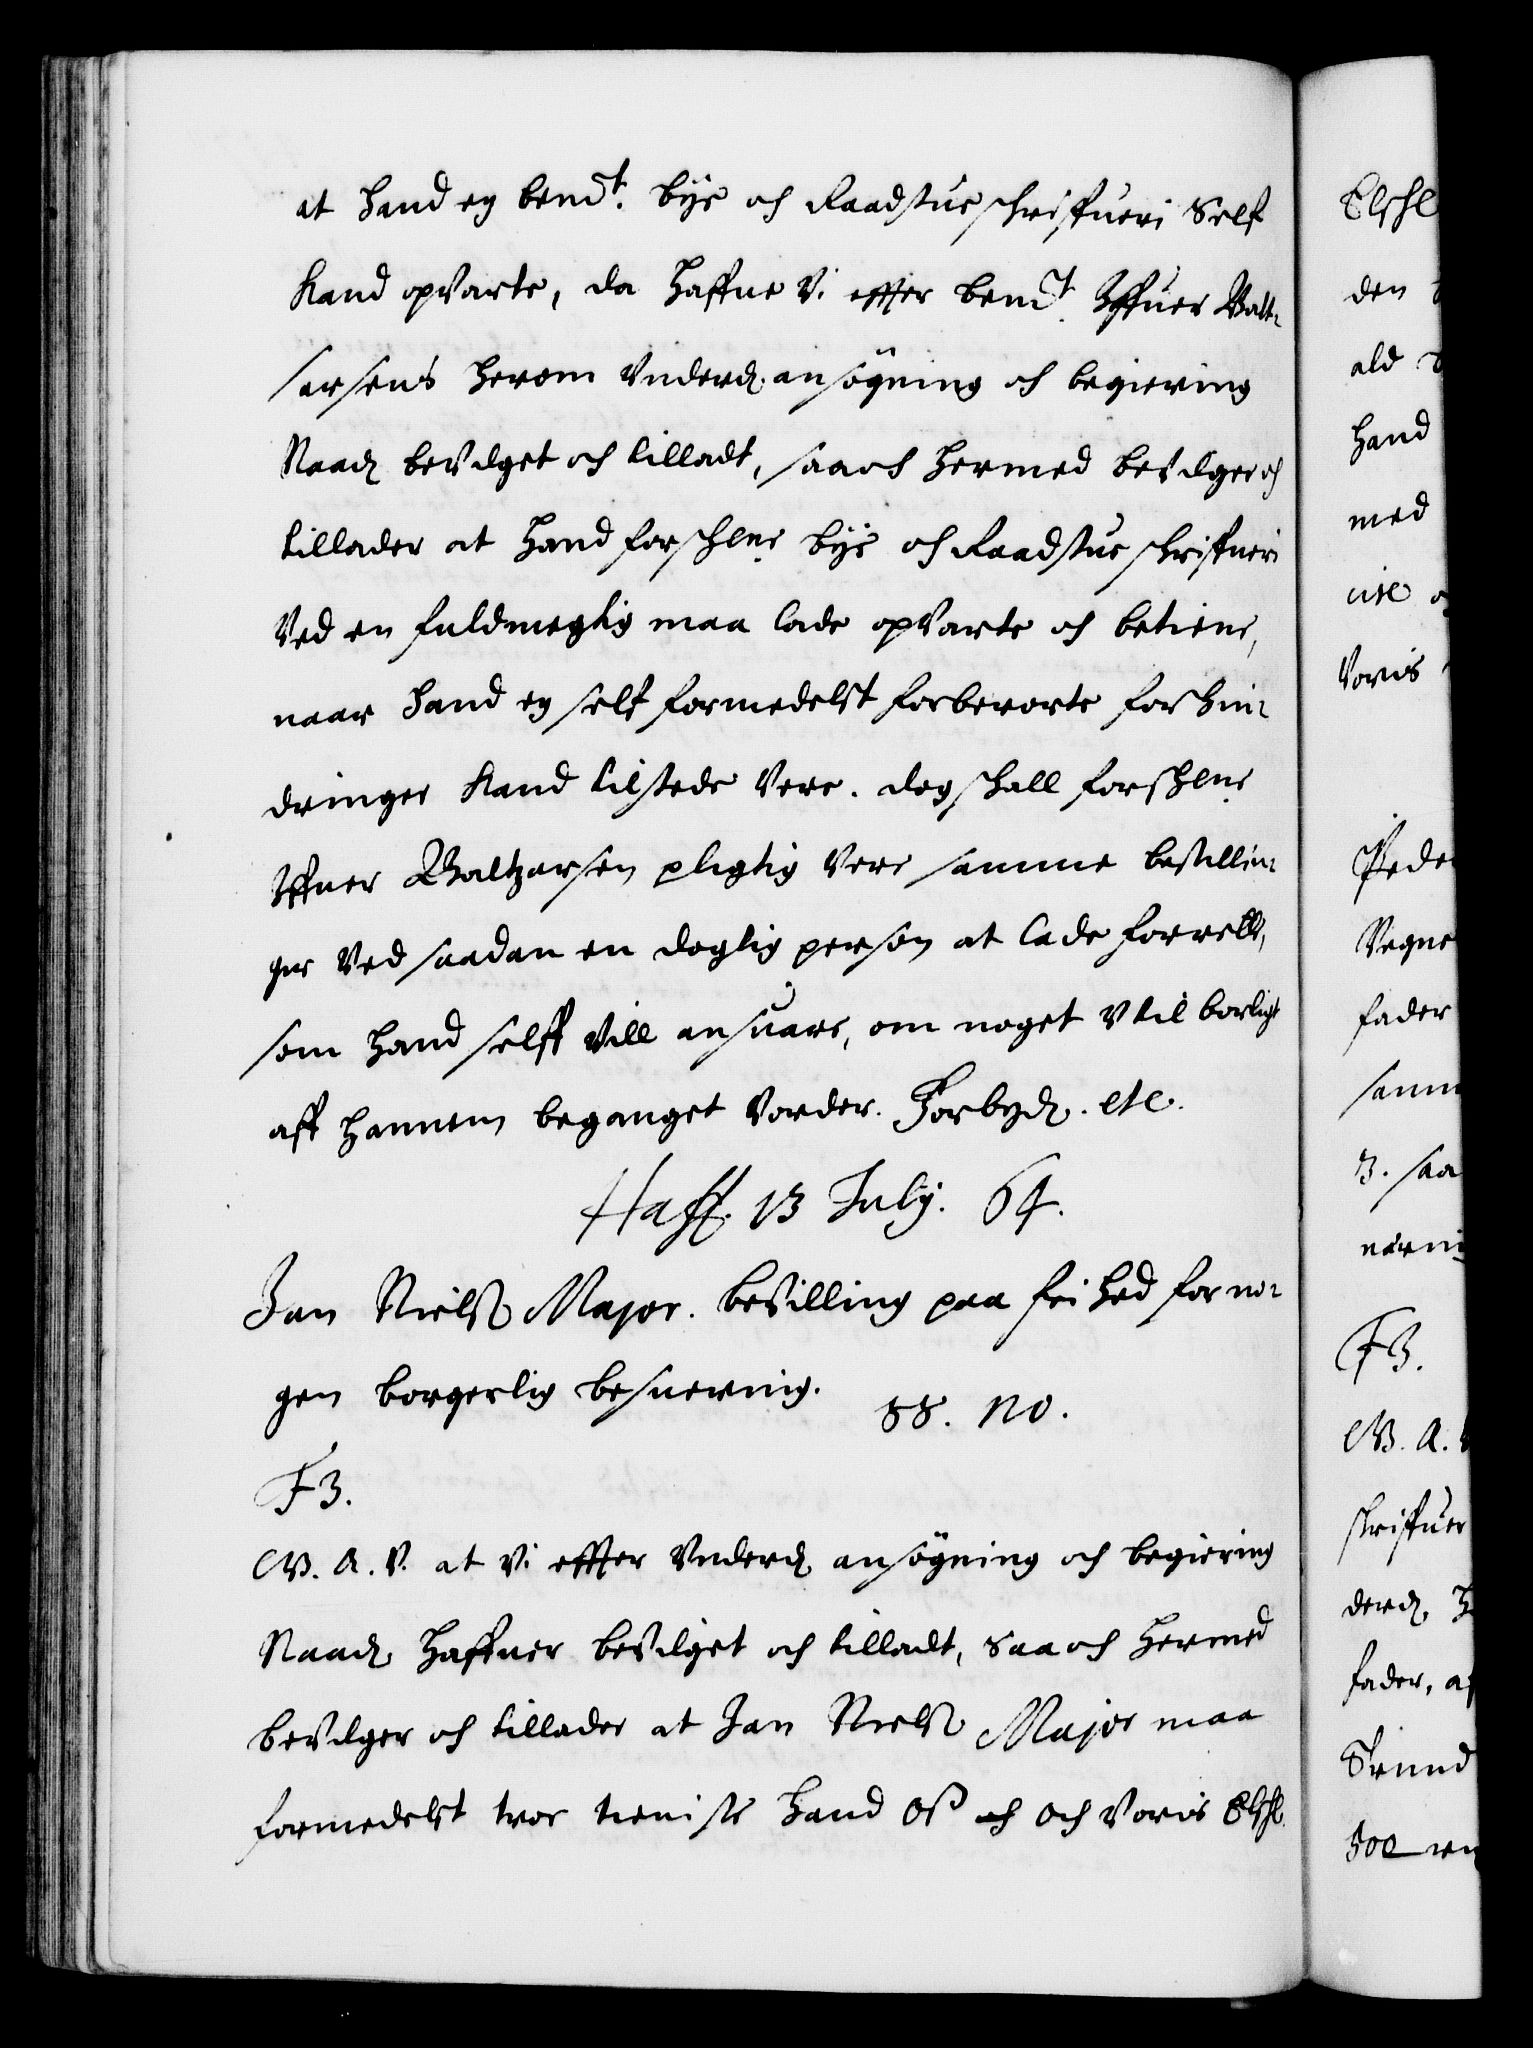 at hand ej bemt. bye och Raadstue schriffueri Self
kand opvarte, da haffue Vi effter bemt. Iffuer Balt-
sarsens herom Vnderd. ansøgning och begiering
Naad. bevilget och tilladt, saa och hermed bevilger och
tillader at hand forschrne bye och Raadstue schriffueri
Ved en fuldmegtig maa lade opvarte och betiene,
naar hand ej self formedelst forberørte forhin-
dringer kand tilstede Vere. dog schall forschrne
Iffuer Baltzersen pligtig Vere samme bestillin-
ger Ved saadan en dygtig person at lade forrette,
som hand selff Vill ansuare, om noget Vtilbørligt
aff hannem beganget Vorder. Forbyd. etc.
Haff. 13 July. 64.
Jan Nielss. Major. bevilling paa frihed for no-
gen borgerlig besuering.
SS. no.
F3.
G. A. V. at Vi effter Vnderd. ansøgning och begiering
Naad. haffuer bevilget och tilladt, Saa och hermed
bevilger och tillader at Jan Nielss. Major maa
formedelst troe tieniste hand oss och och Voris Elschl.
Elschl
den
ald
hand
med
cise
Voris
Peder
Vegne
fader
samm
3. saa
nærni
F3.
G. A. V
schriffuer
derd. h
fader, af
Trund
500 en